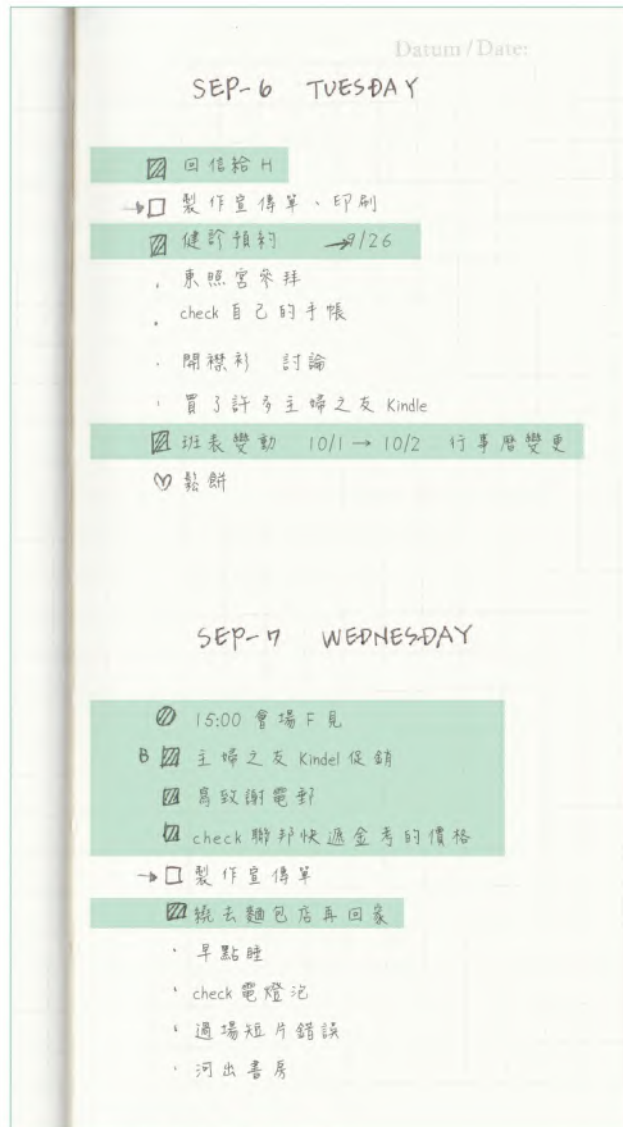 Datum / Date:
SEP-6 TUESDAY
回信給 H
→□ 製作宣傳單、印刷
健診預約 →9/26
· 東照宮參拜
· check 自己的手帳
· 開襟衫 討論
· 買了許多主婦之友 Kindle
班表變動 10/1 → 10/2 行事曆變更
♡ 鬆餅
SEP-7 WEDNESDAY
15:00 會場 F 見
B 主婦之友 Kindel 促銷
寫致謝電郵
check 聯邦快遞金考的價格
→□ 製作宣傳單
繞去麵包店再回家
· 早點睡
· check 電燈泡
· 過場短片錯誤
· 河出書房